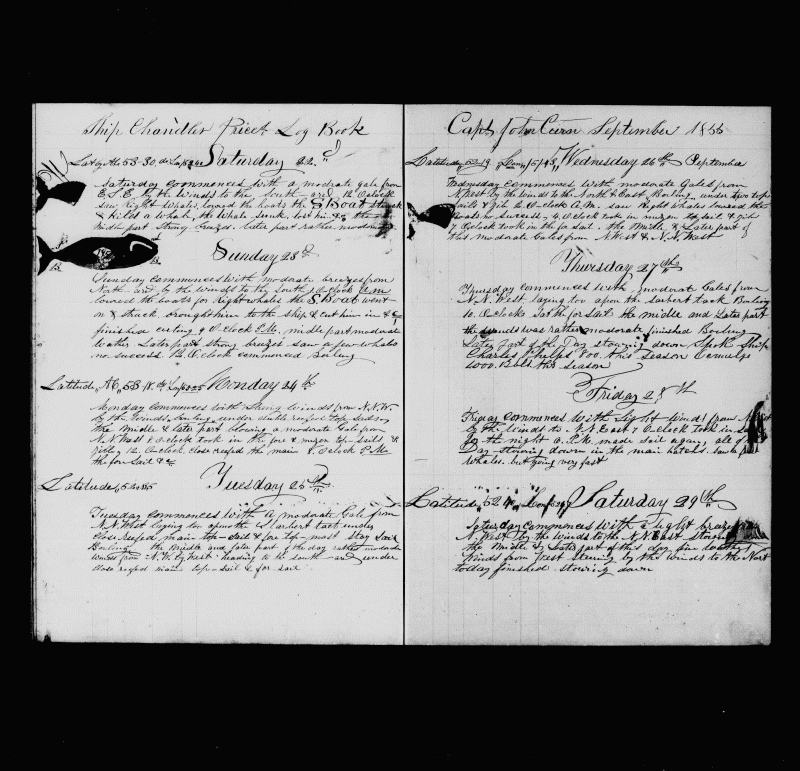 Ship Chandler Price Log Book
Saturday 22.d
Saturday commences with a modrate gale from
E.S.E. by the winds to the south and 12 Oclock
saw Right Whales lowerd the boats the S Boat struck
& kild a whale, the Whale sunk lost him &c the
midth part Strong breazes later part rather moderate
Sunday 23.d
Sunday commences with moderat breezes from
North and by the winds to the south 9 Oclock A.M
lowered the boats for Right whales the S Boat went
on & struck, brought him to the ship & cut him in &
finished cuting 9 O-clock P.M. middle part moderat
weather Later part strong breezes saw a few whales
no success. 12 Oclock commenced Boiling
Latitude 53 Monday 24th
Monday commences with Strong winds from N.N.W.
by the winds under double reefed top sails
the Middle & later part blowing a moderate Gale from
N.N West 8 Oclock took in the fore & mizen top-sails &
jib 12. Oclock Close reefed the main P.M.
the for Sail &c
Latitude, 52 Tuesday 25th
Tuesday commences with A moderate Gale from
N.N West lying too upon the Larbert tact under
close reefed main top-sail & fore top-mast stay Sail
Boiling the Middle and later part of the day rather modrate
winds from N.W. by West heading to the south and under
close reefed main top-sail & for sail
Capt John September 1855
Latitude 52 19 Wednesday 26th September
Wednesday commences with moderate Gales from
N West by the winds to the North & East Boiling, under two top
sails & Jib 6 O-clock A.M. saw Right Whales lowered the
Boats no success 4 Oclock took in mizen top sail & Jib
7 Oclock took in the for sail. the Middle & Later part of
this Moderate Gales from N West & N.N West
Thursday 27th
Thursday commences with moderat Gales from
N.N. West laying too upon the larbert tack Boiling
10. Oclock Sat the for sail the middle and Later part
the winds was rather moderate finished Boiling
Later part of the day stowing down Spok Ship
Charles Phelps 800. this Season
1000. Bbls this season
Friday 28th
Friday commences with Light winds from N West
by the winds to N.N. East 7 Oclock took in sail
for the night 10. P.M. made sail again, all of
Day stowing down in the main hatch. saw a few
Whales. but going very fast
Latitude, 52 Saturday 29th
Saturday commences with a light breeze from
N West by the winds to the N.N. East
the Middle & Later part of this day fine weather
winds from West stearing by the winds to the Nort
today finished stowing down